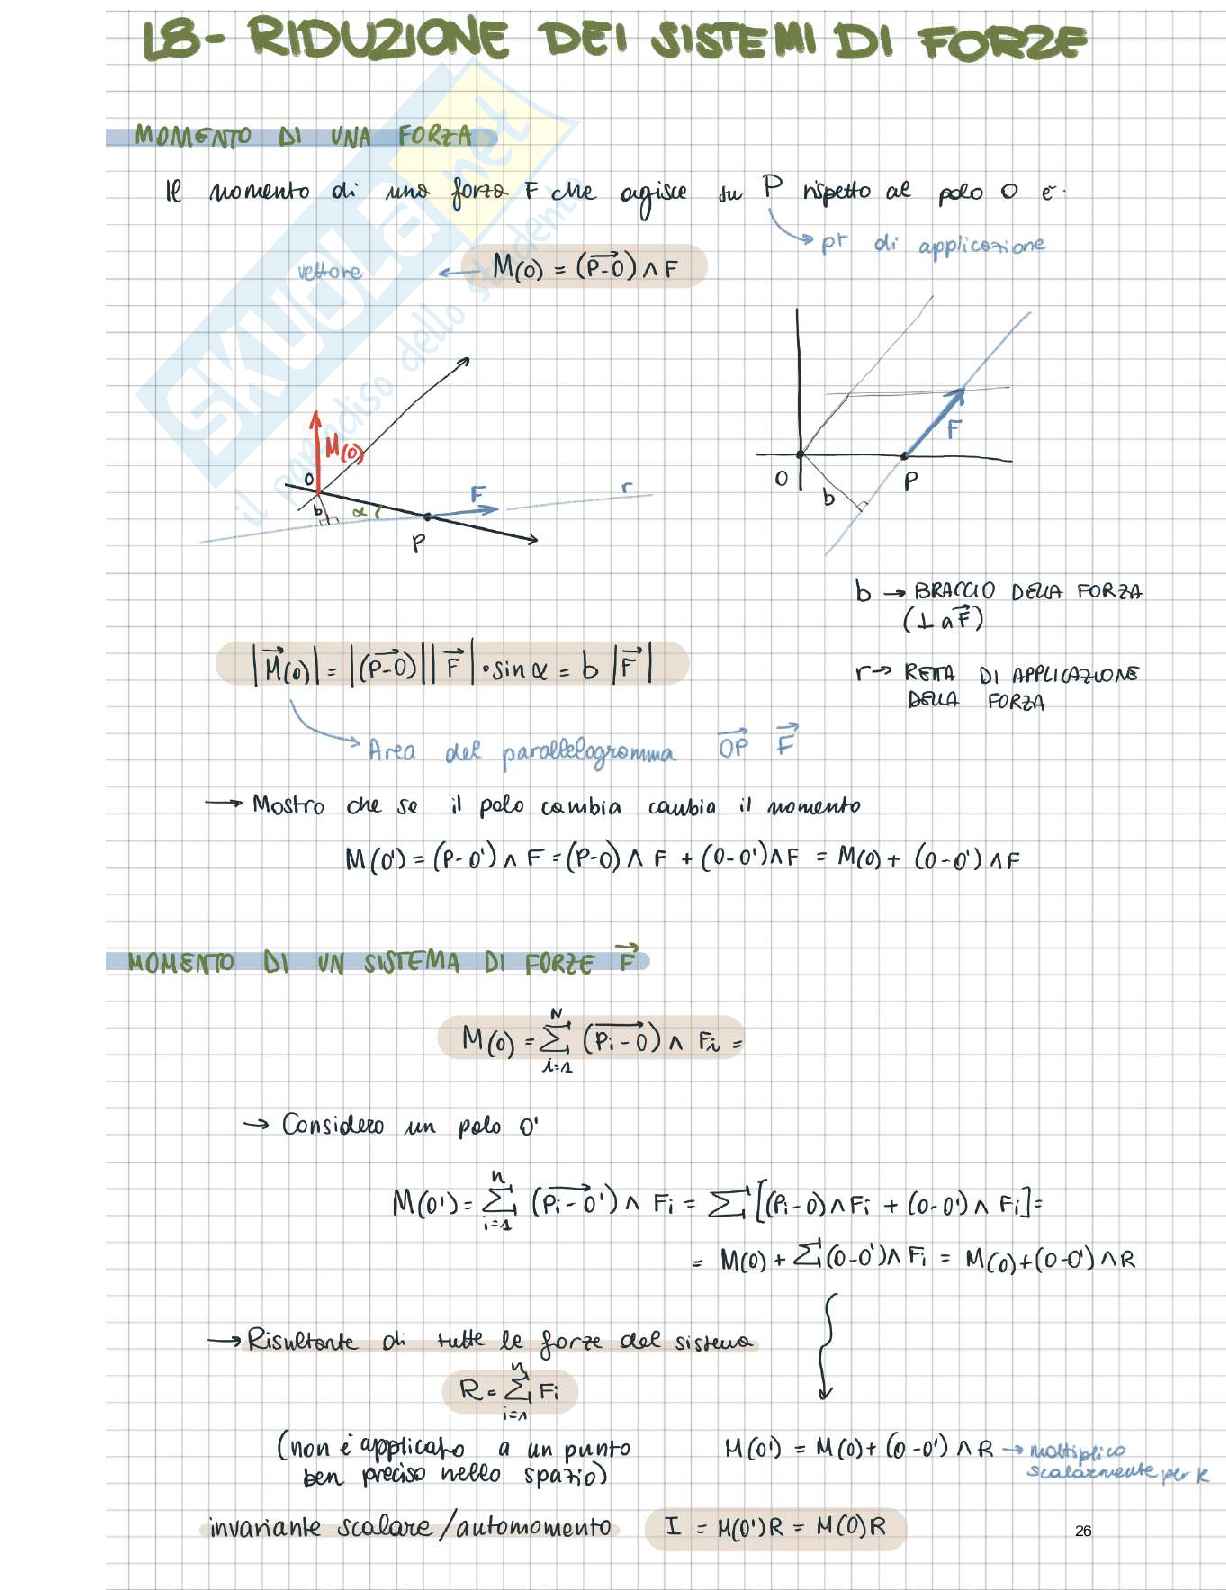 L8- RIDUZIONE DEI SISTEMI DI FORZE
MOMENTO DI UNA FORZA
Il momento di una forza F che agisce su P rispetto al polo O è.
pt di applicazione
vettore ← M(O) = (P-O) ∧ F
M(O)
O
b
α
F
r
P
F
O
P
b
b → BRACCIO DELLA FORZA
(⊥ a F)
|M(O)| = |(P-O)||F|·sinα = b |F|
r → RETTA DI APPLICAZIONE
DELLA FORZA
Area del parallelogramma OP F
→ Mostro che se il polo cambia cambia il momento
M(O') = (P-O') ∧ F = (P-O) ∧ F + (O-O') ∧ F = M(O) + (O-O') ∧ F
MOMENTO DI UN SISTEMA DI FORZE F
M(O) = Σ_{i=1}^{N} (Pi-O) ∧ Fi =
→ Considero un polo O'
M(O') = Σ_{i=1}^{n} (Pi-O') ∧ Fi = Σ [(Pi-O) ∧ Fi + (O-O') ∧ Fi] =
= M(O) + Σ (O-O') ∧ Fi = M(O) + (O-O') ∧ R
→ Risultante di tutte le forze del sistema
R = Σ_{i=1}^{n} Fi
(non è applicato a un punto
ben preciso nello spazio)
M(O') = M(O) + (O-O') ∧ R → moltiplico
scalarmente per R
invariante scalare/automomento I = M(O')R = M(O)R
26
SKUOLA.net
il paradiso dello studente